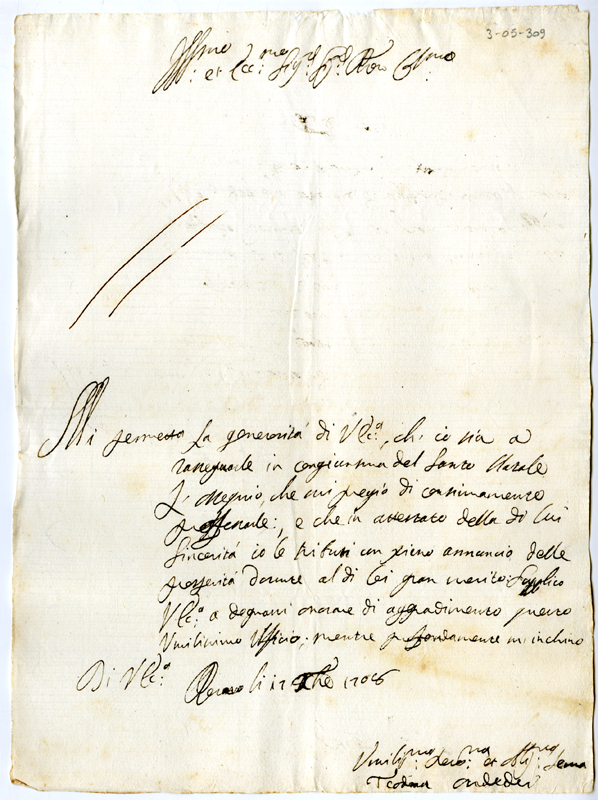 3-05-309
Illmo
et Ecc.mo Sig.r Sig.r Pron Col.mo
Mi permetta la generosità di V. Ecc.a, ch'io sia a
rassegnarle in congiuntura del Santo Natale
l'ossequio, che mi pregio di continuamente
professarle; e che in attestato della di lui
sincerità io le tributi un pieno annuncio delle
prosperità dovute al di lei gran merito. Supplico
V. Ecc.a a degnarsi onorare di aggradimento questo
umilissimo ufficio, mentre profondamente m'inchino
Di V. Ecc.a li 17 Xbre 1706
Umiliss.mo Devo.mo et Obl.mo Serva